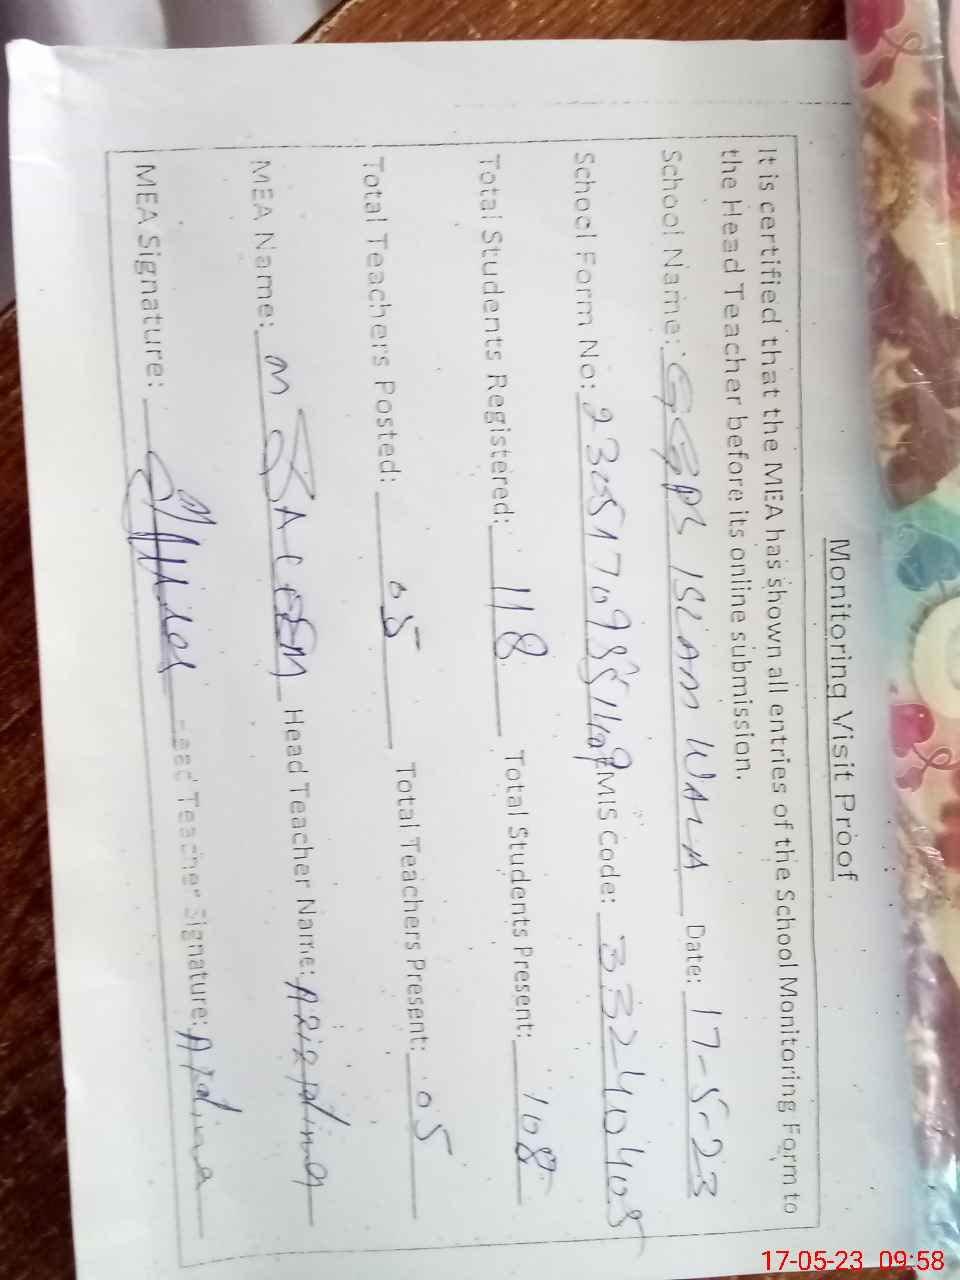 Monitoring Visit Proof
It is certified that the MEA has shown all entries of the School Monitoring Form to
the Head Teacher before its online submission.
School Name: GGPS ISLAM WALA Date: 17-5-23
School Form No: EMIS Code: 33240405
Total Students Registered: 118 Total Students Present: 108
Total Teachers Posted: 05 Total Teachers Present: 05
MEA Name: M Head Teacher Name:
MEA Signature: Head Teacher Signature:
17-05-23 09:58